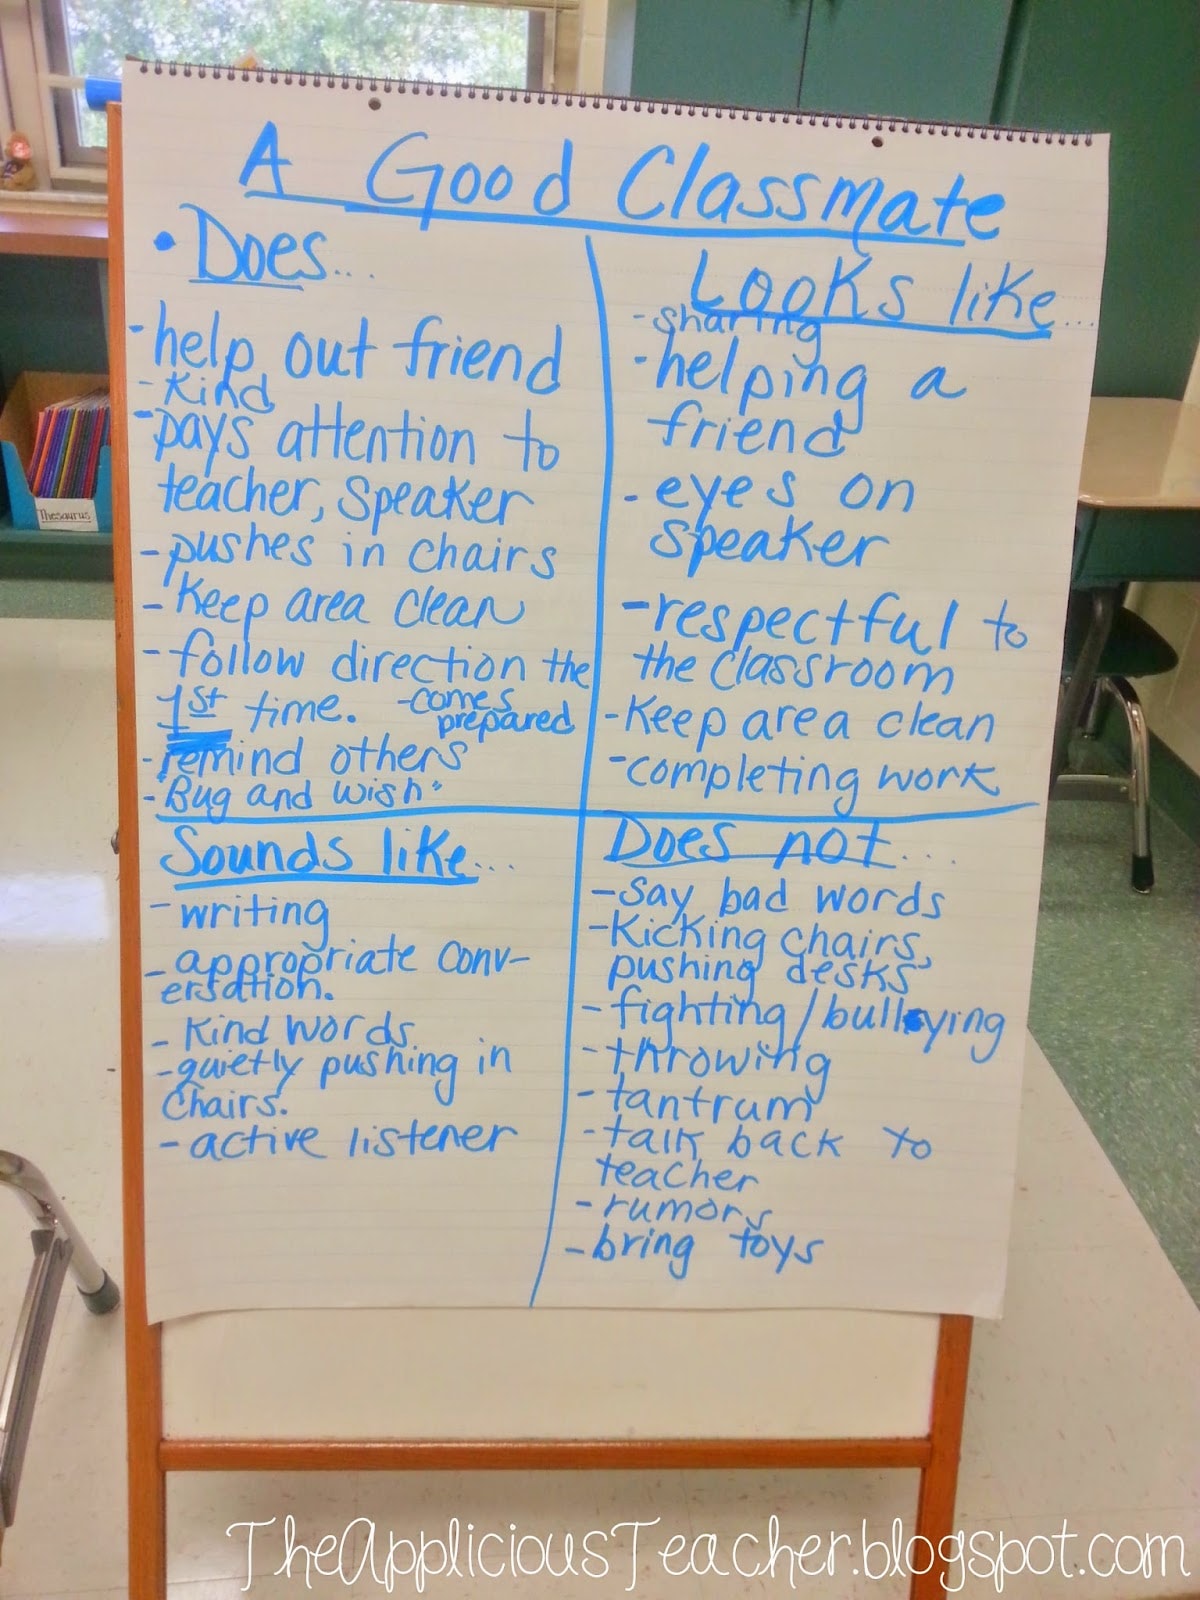 A Good Classmate
• Does...
- help out friend
- Kind
- pays attention to
teacher, speaker
- pushes in chairs
- Keep area clean
- follow direction the
1st time. - comes
prepared
- remind others
- Bug and wish"
Looks like...
- sharing
- helping a
friend
- eyes on
speaker
- respectful to
the classroom
- Keep area clean
- completing work
Sounds like...
- writing
- appropriate conv-
ersation.
- Kind words
- quietly pushing in
chairs.
- active listener
Does not...
- say bad words
- Kicking chairs,
pushing desks
- fighting/bullying
- throwing
- tantrum
- talk back to
teacher
- rumors
- bring toys
Thesaurus
TheAppliciousTeacher.blogspot.com